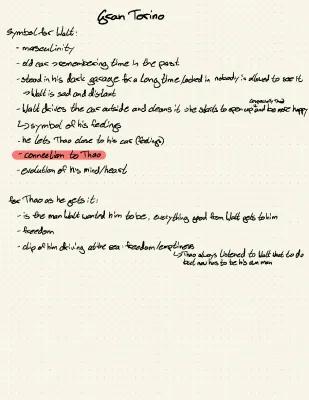 Gran Torino
Symbol for Walt:
- masculinity
- old car → remembering time in the past
- stood in his dark garage for a long time locked in nobody is allowed to see it
→ Walt is sad and distant
- Walt drives the car outside and cleans it → he starts to open up and be more happy
↳ symbol of his feelings
- he lets Thao close to his car (feelings)
- connection to Thao
- evolution of his mind/heart
for Thao as he gets it:
- is the man Walt wanted him to be, everything good from Walt gets to him
- freedom
- clip of him driving at the sea: freedom/emptiness
↳ Thao always listened to Walt what to do
but now has to be his own man